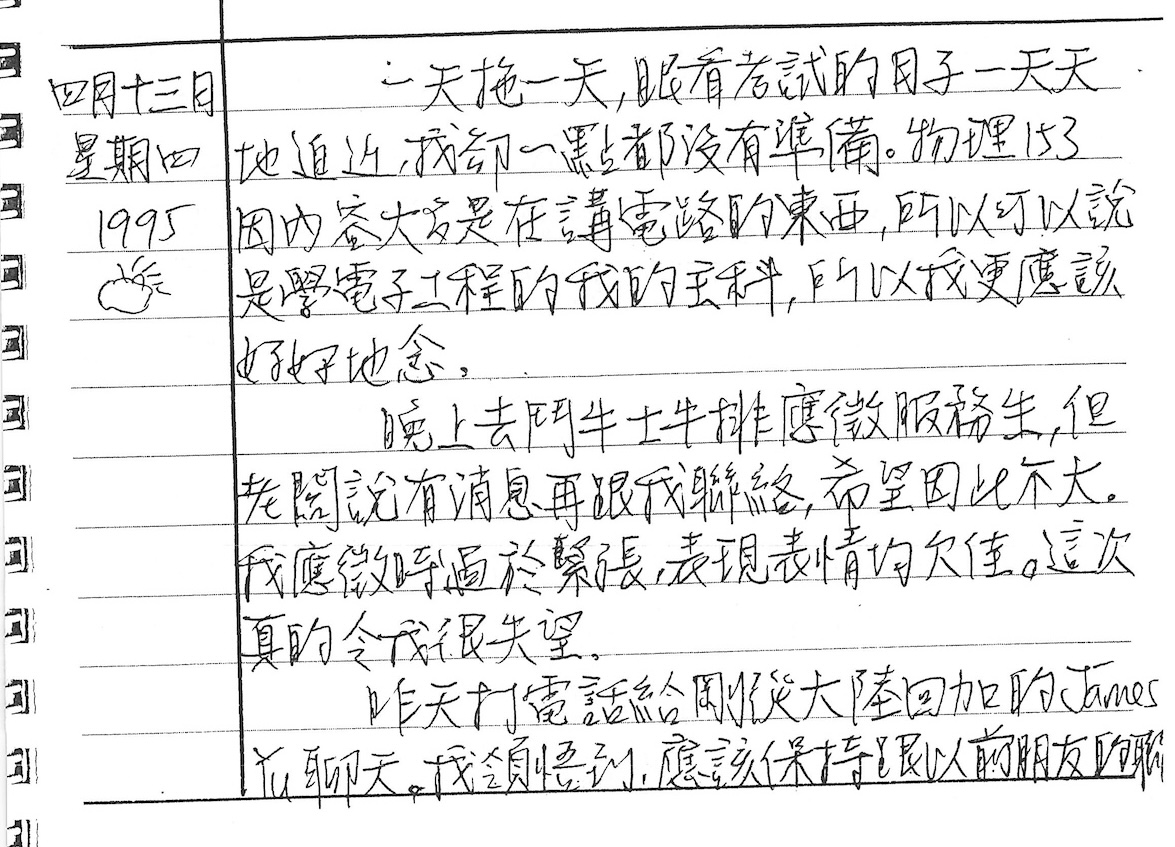 四月十三日
星期四
1995
一天拖一天,眼看考試的日子一天天
地迫近,我卻一點都沒有準備。物理153
因內容大多是在講電路的東西,所以可以說
是學電子工程的我的主科,所以我更應該
好好地念。
晚上去鬥牛士牛排應徵服務生,但
老闆說有消息再跟我聯絡,希望因此不大。
我應徵時過於緊張,表現表情均欠佳。這次
真的令我很失望。
昨天打電話給剛從大陸回加的James
Yu聊天。我領悟到,應該保持跟以前朋友的聯